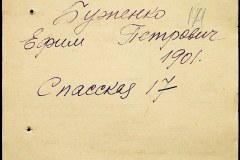 Буженко
171
Ефим Петрович
1901.
Спасская 17